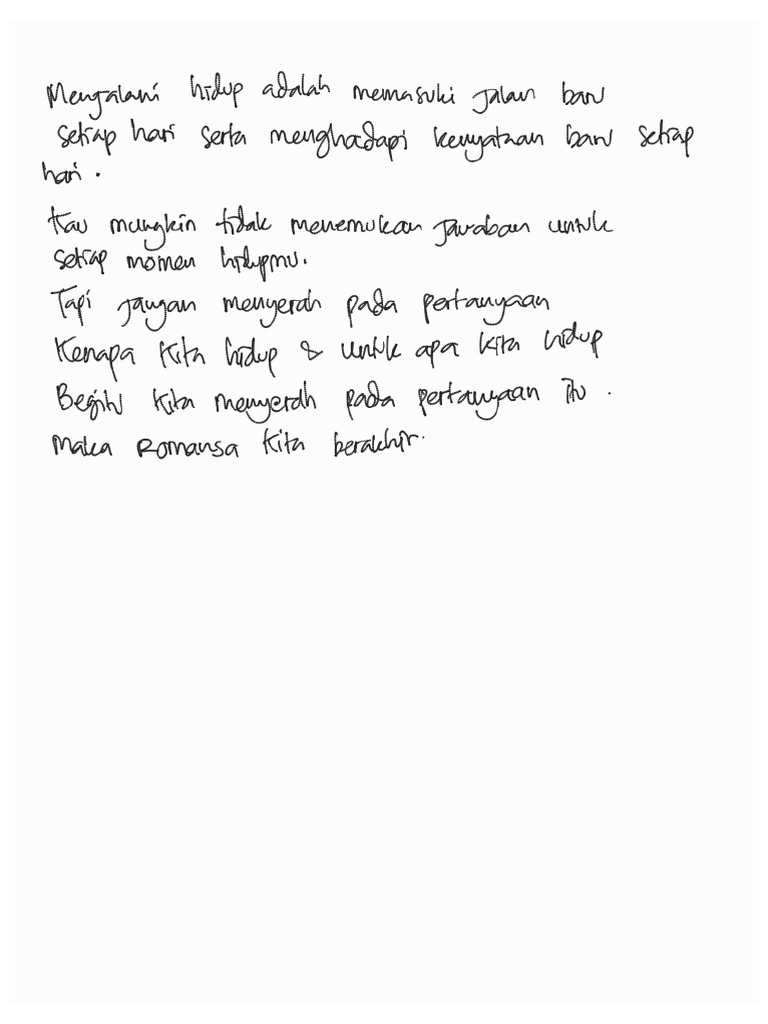 Menjalani hidup adalah memasuki jalan baru
setiap hari serta menghadapi kenyataan baru setiap
hari.
Kau mungkin tidak menemukan jawaban untuk
setiap momen hidupmu.
Tapi jangan menyerah pada pertanyaan
Kenapa kita hidup & untuk apa kita hidup
Begitu kita menyerah pada pertanyaan itu.
Maka Romansa kita berakhir.